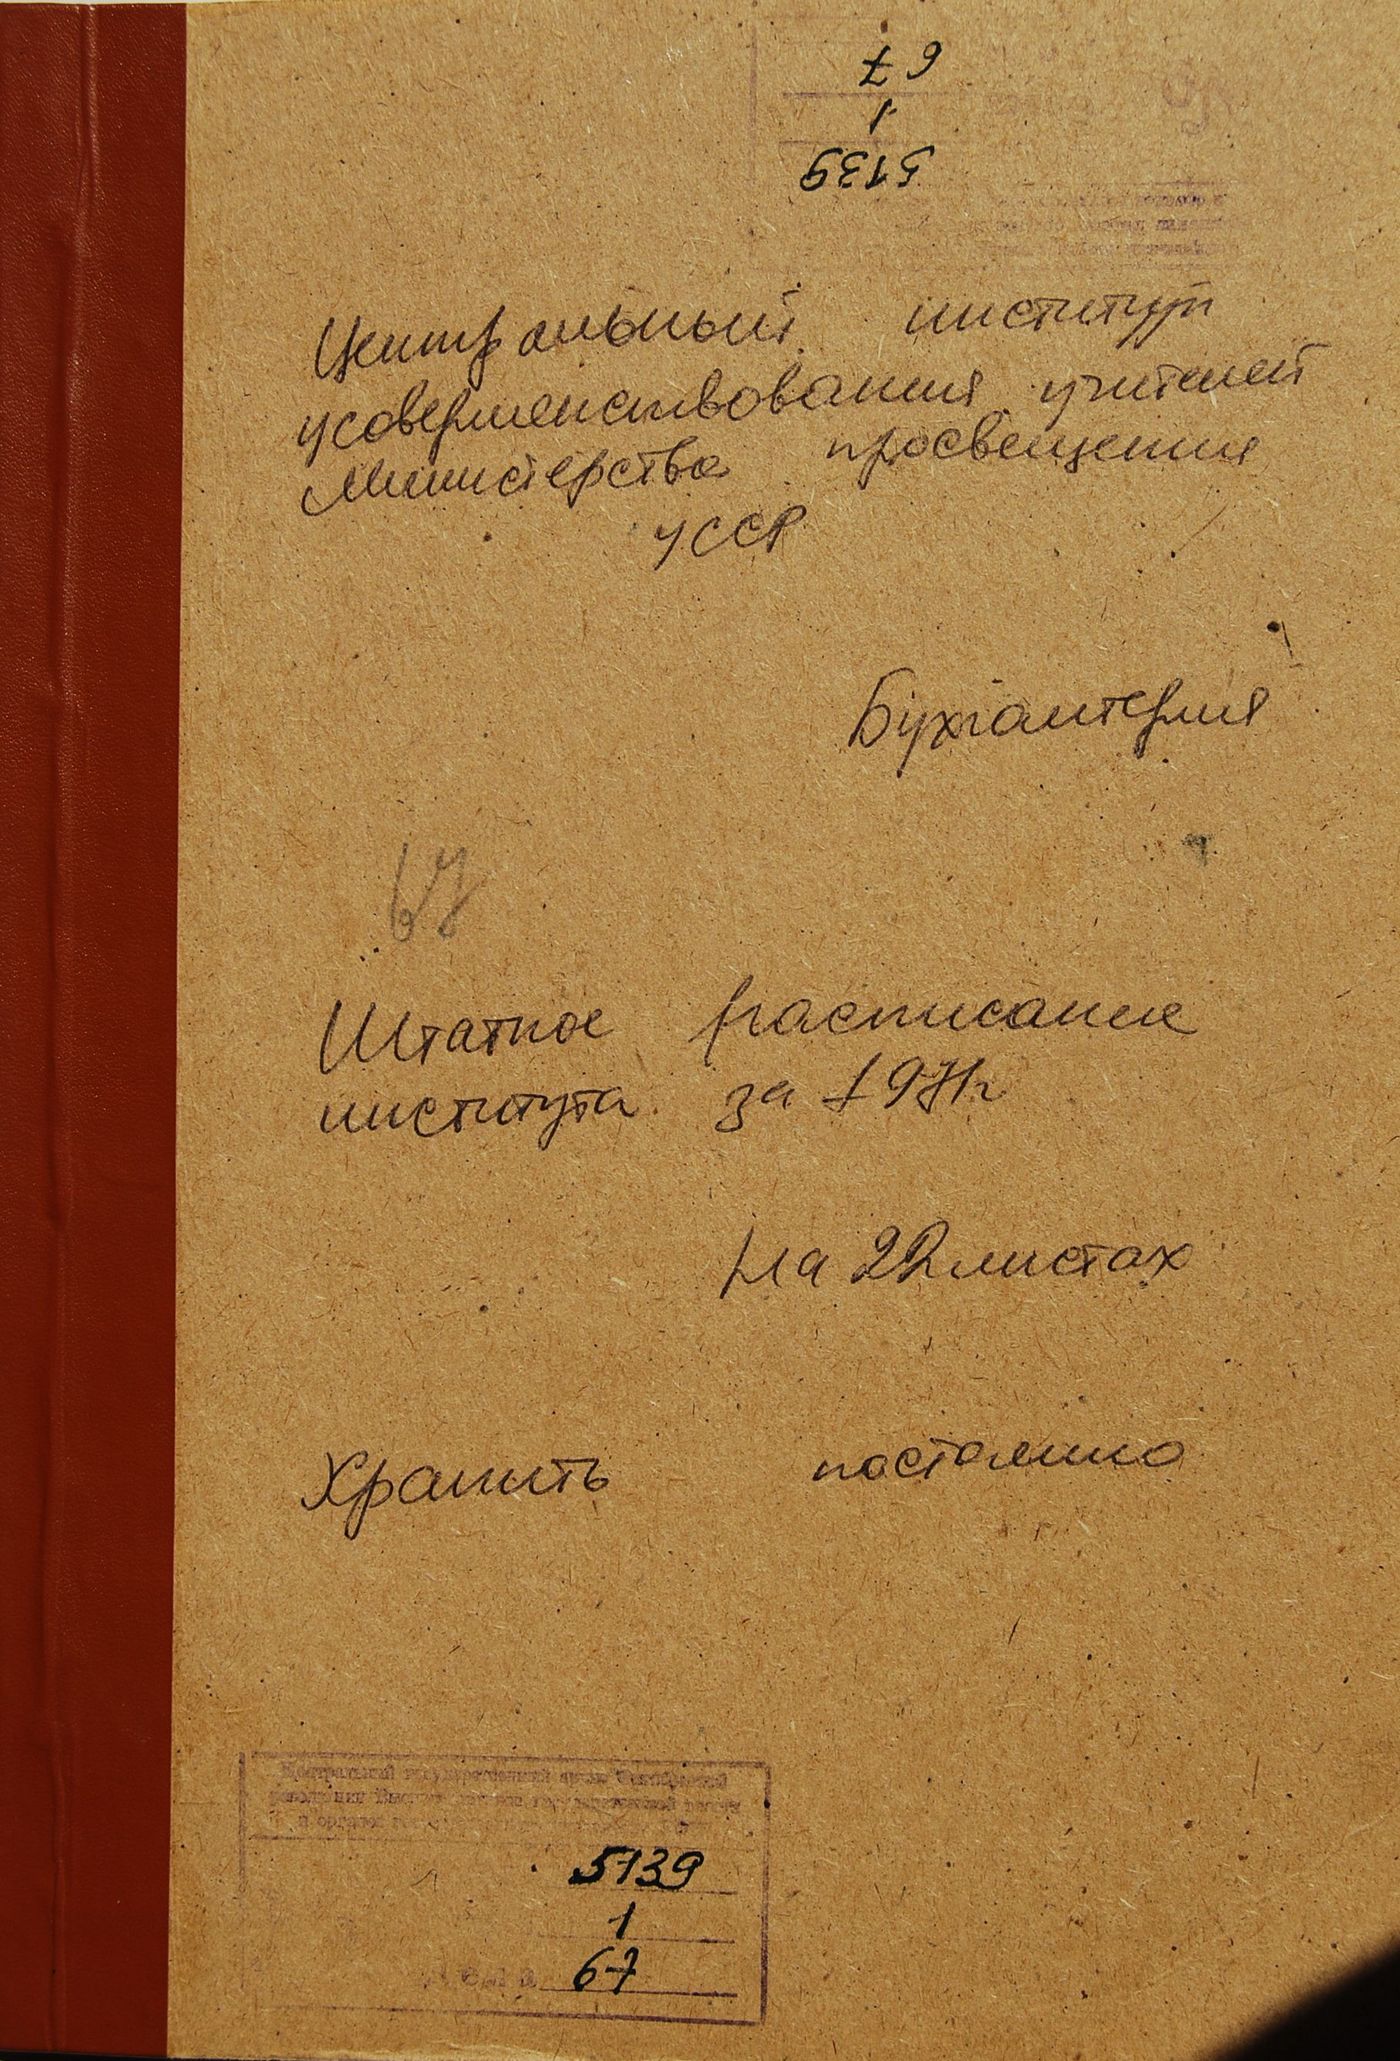 67
1
5139
Центральный институт
усовершенствования учителей
Министерства просвещения
УССР
Бухгалтерия
67
Штатное расписание
института за 1971г
на 22 листах
Хранить постоянно
Центральный государственный архив Октябрьской
революции
и органов
5139
1
67